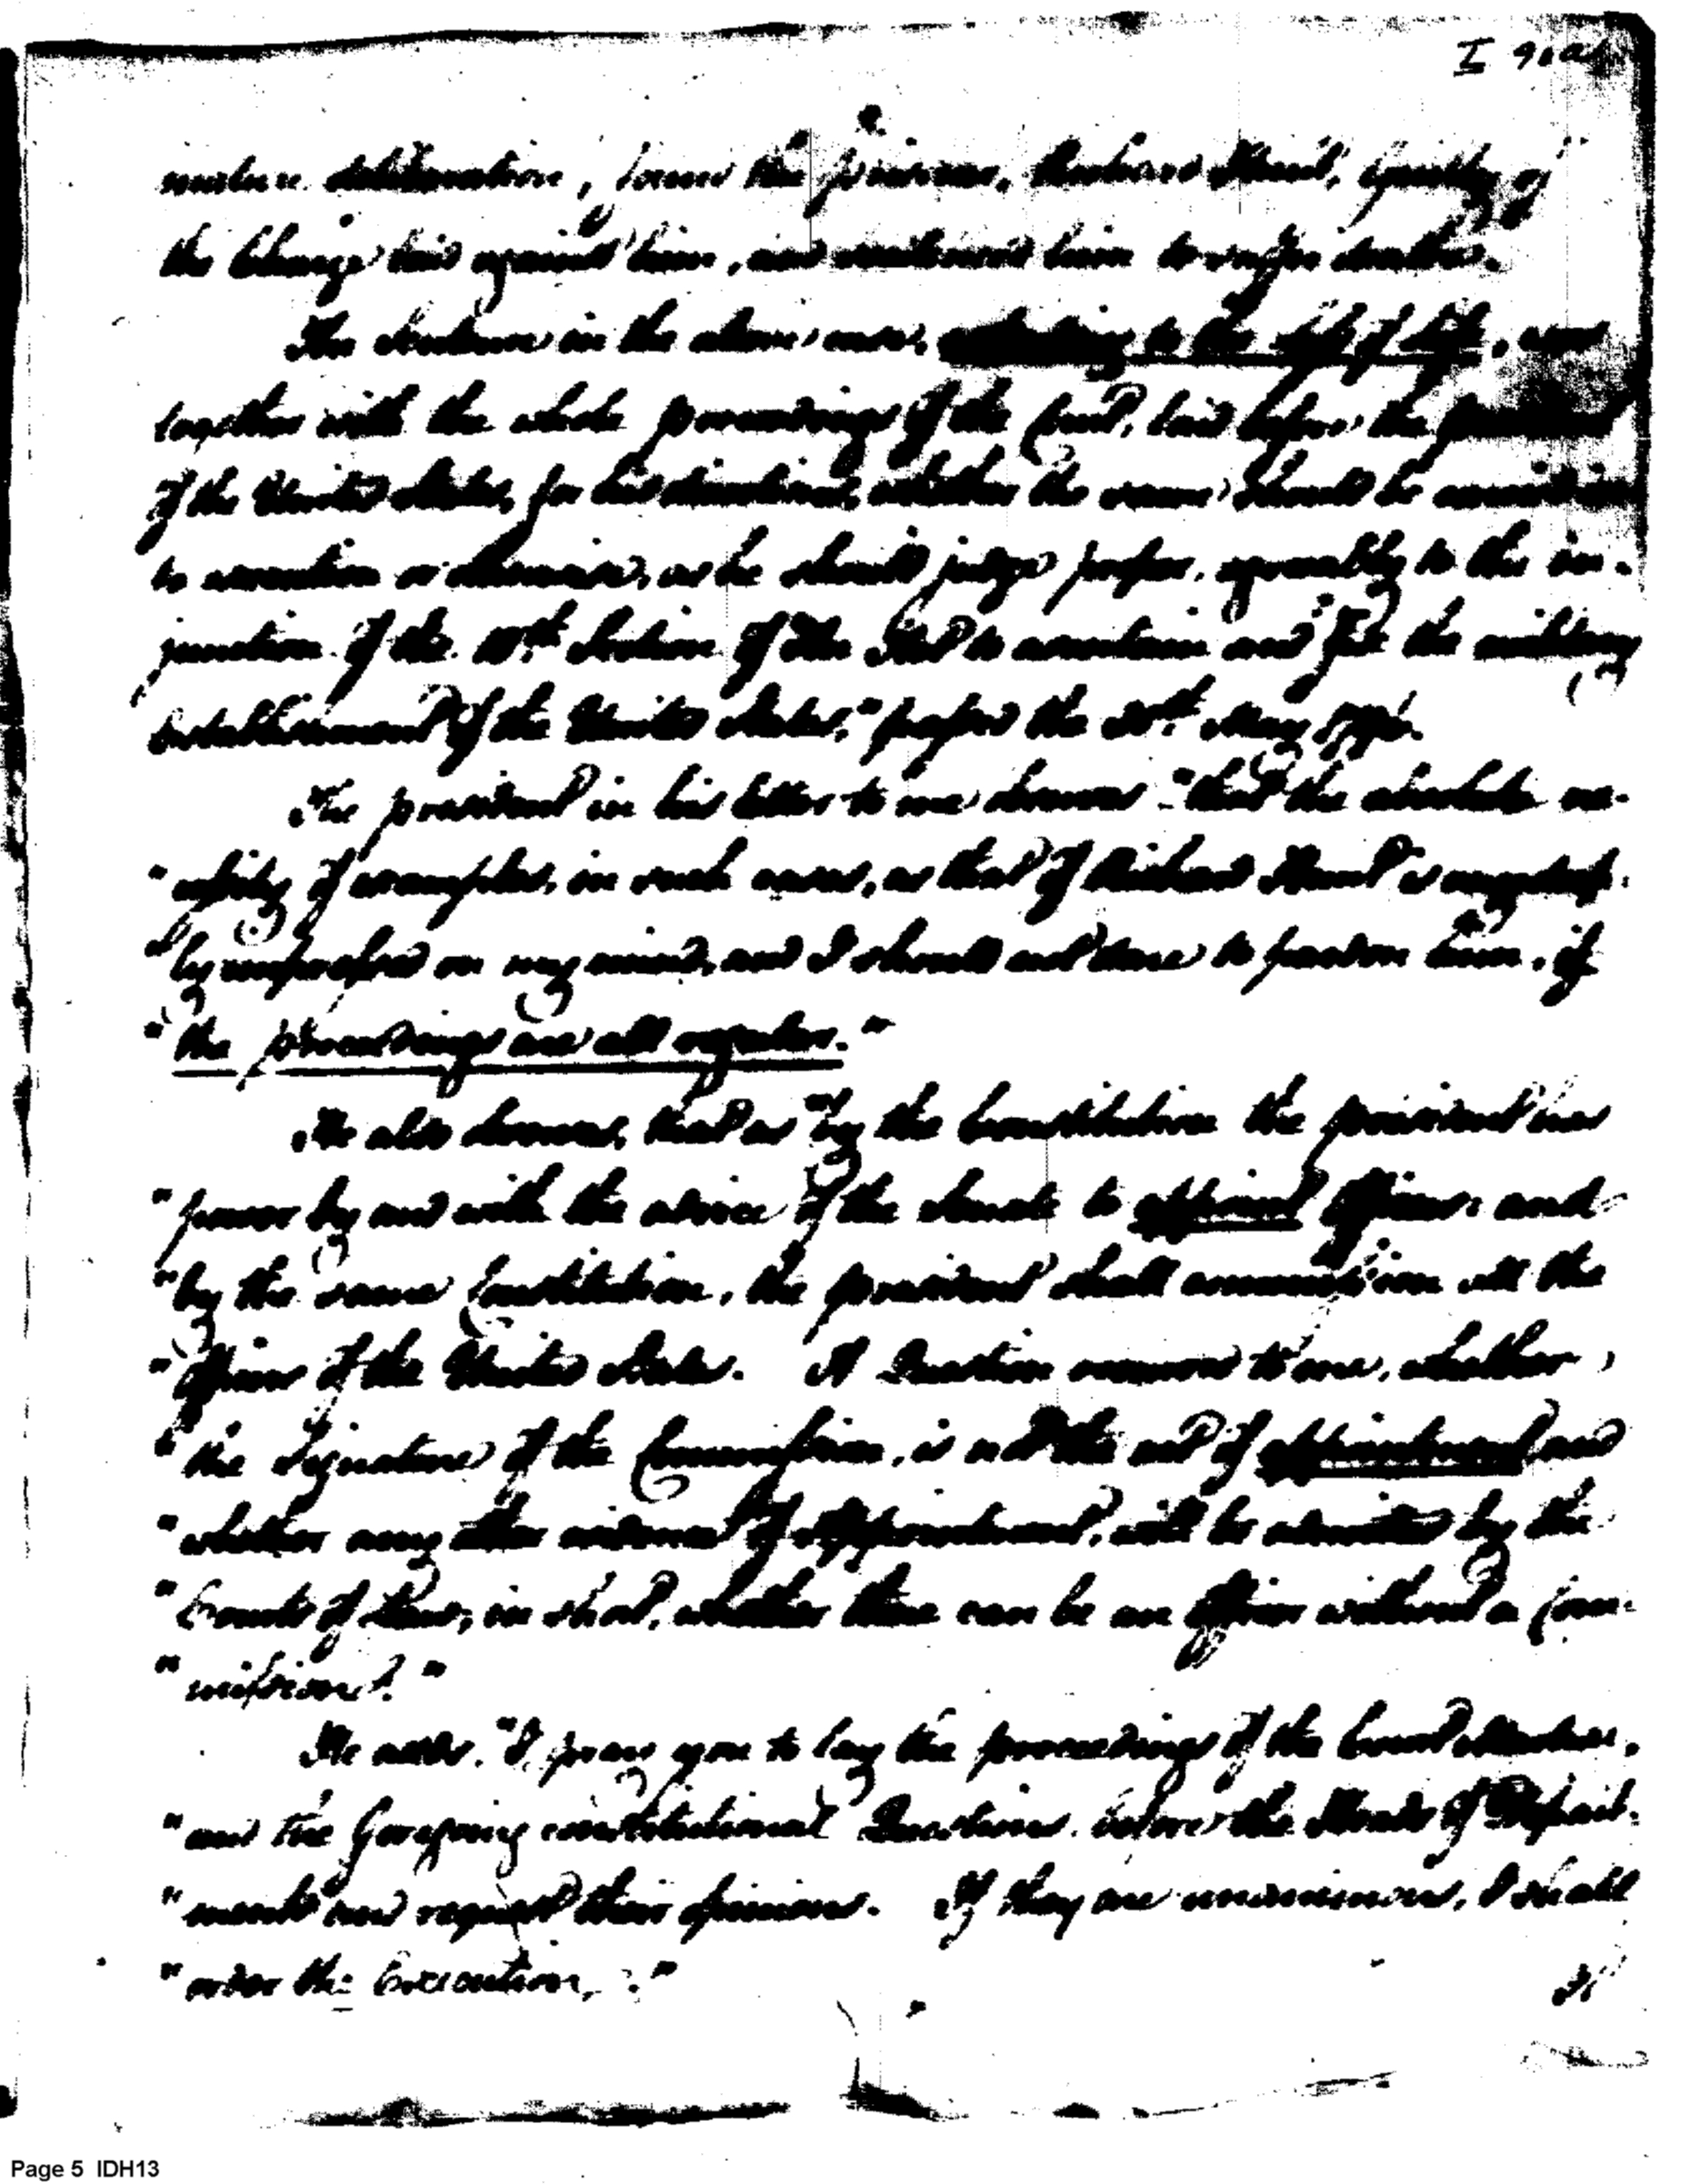 I 91a
mature deliberation, found the prisoner, Richard Hunt, Guilty of
the Charge laid against him, and sentenced him to suffer death.
The Sentence in the above case, extending to the loss of life, was
together with the whole proceedings of the Court, laid before the president
of the United States, for his directions, whether the same should be carried
to execution or otherwise, as he should judge proper, agreeably to the in-
junction of the Section of the "Act to ascertain and fix the military
establishment of the United States," passed the 30th May 1796.
The president in his letter to me observes "that the absolute ne-
"cessity of examples, in such cases, as that of Richard Hunt is
"by impressed on my mind, and I should not dare to pardon him, if
"the proceedings are all regular."
He also observes, that as "by the Constitution the president has
"power by and with the advice of the Senate to appoint officers and
"by the same Constitution, the president shall commission all the
"officers of the United States. A Question occurred to me, whether,
"the Signature of the Commission, is not the act of appointment and
"whether any other evidence of appointment, will be admitted by the
"Courts of Law, in short, whether there can be an officer without a Com-
"mission?"
He adds, "I pray you to lay the proceedings of the Court Martial,
"and the foregoing constitutional Question, before the Heads of Depart-
"ments and request their opinions. If they are unanimous, I shall
"order the Execution."
It
Page 5 IDH13